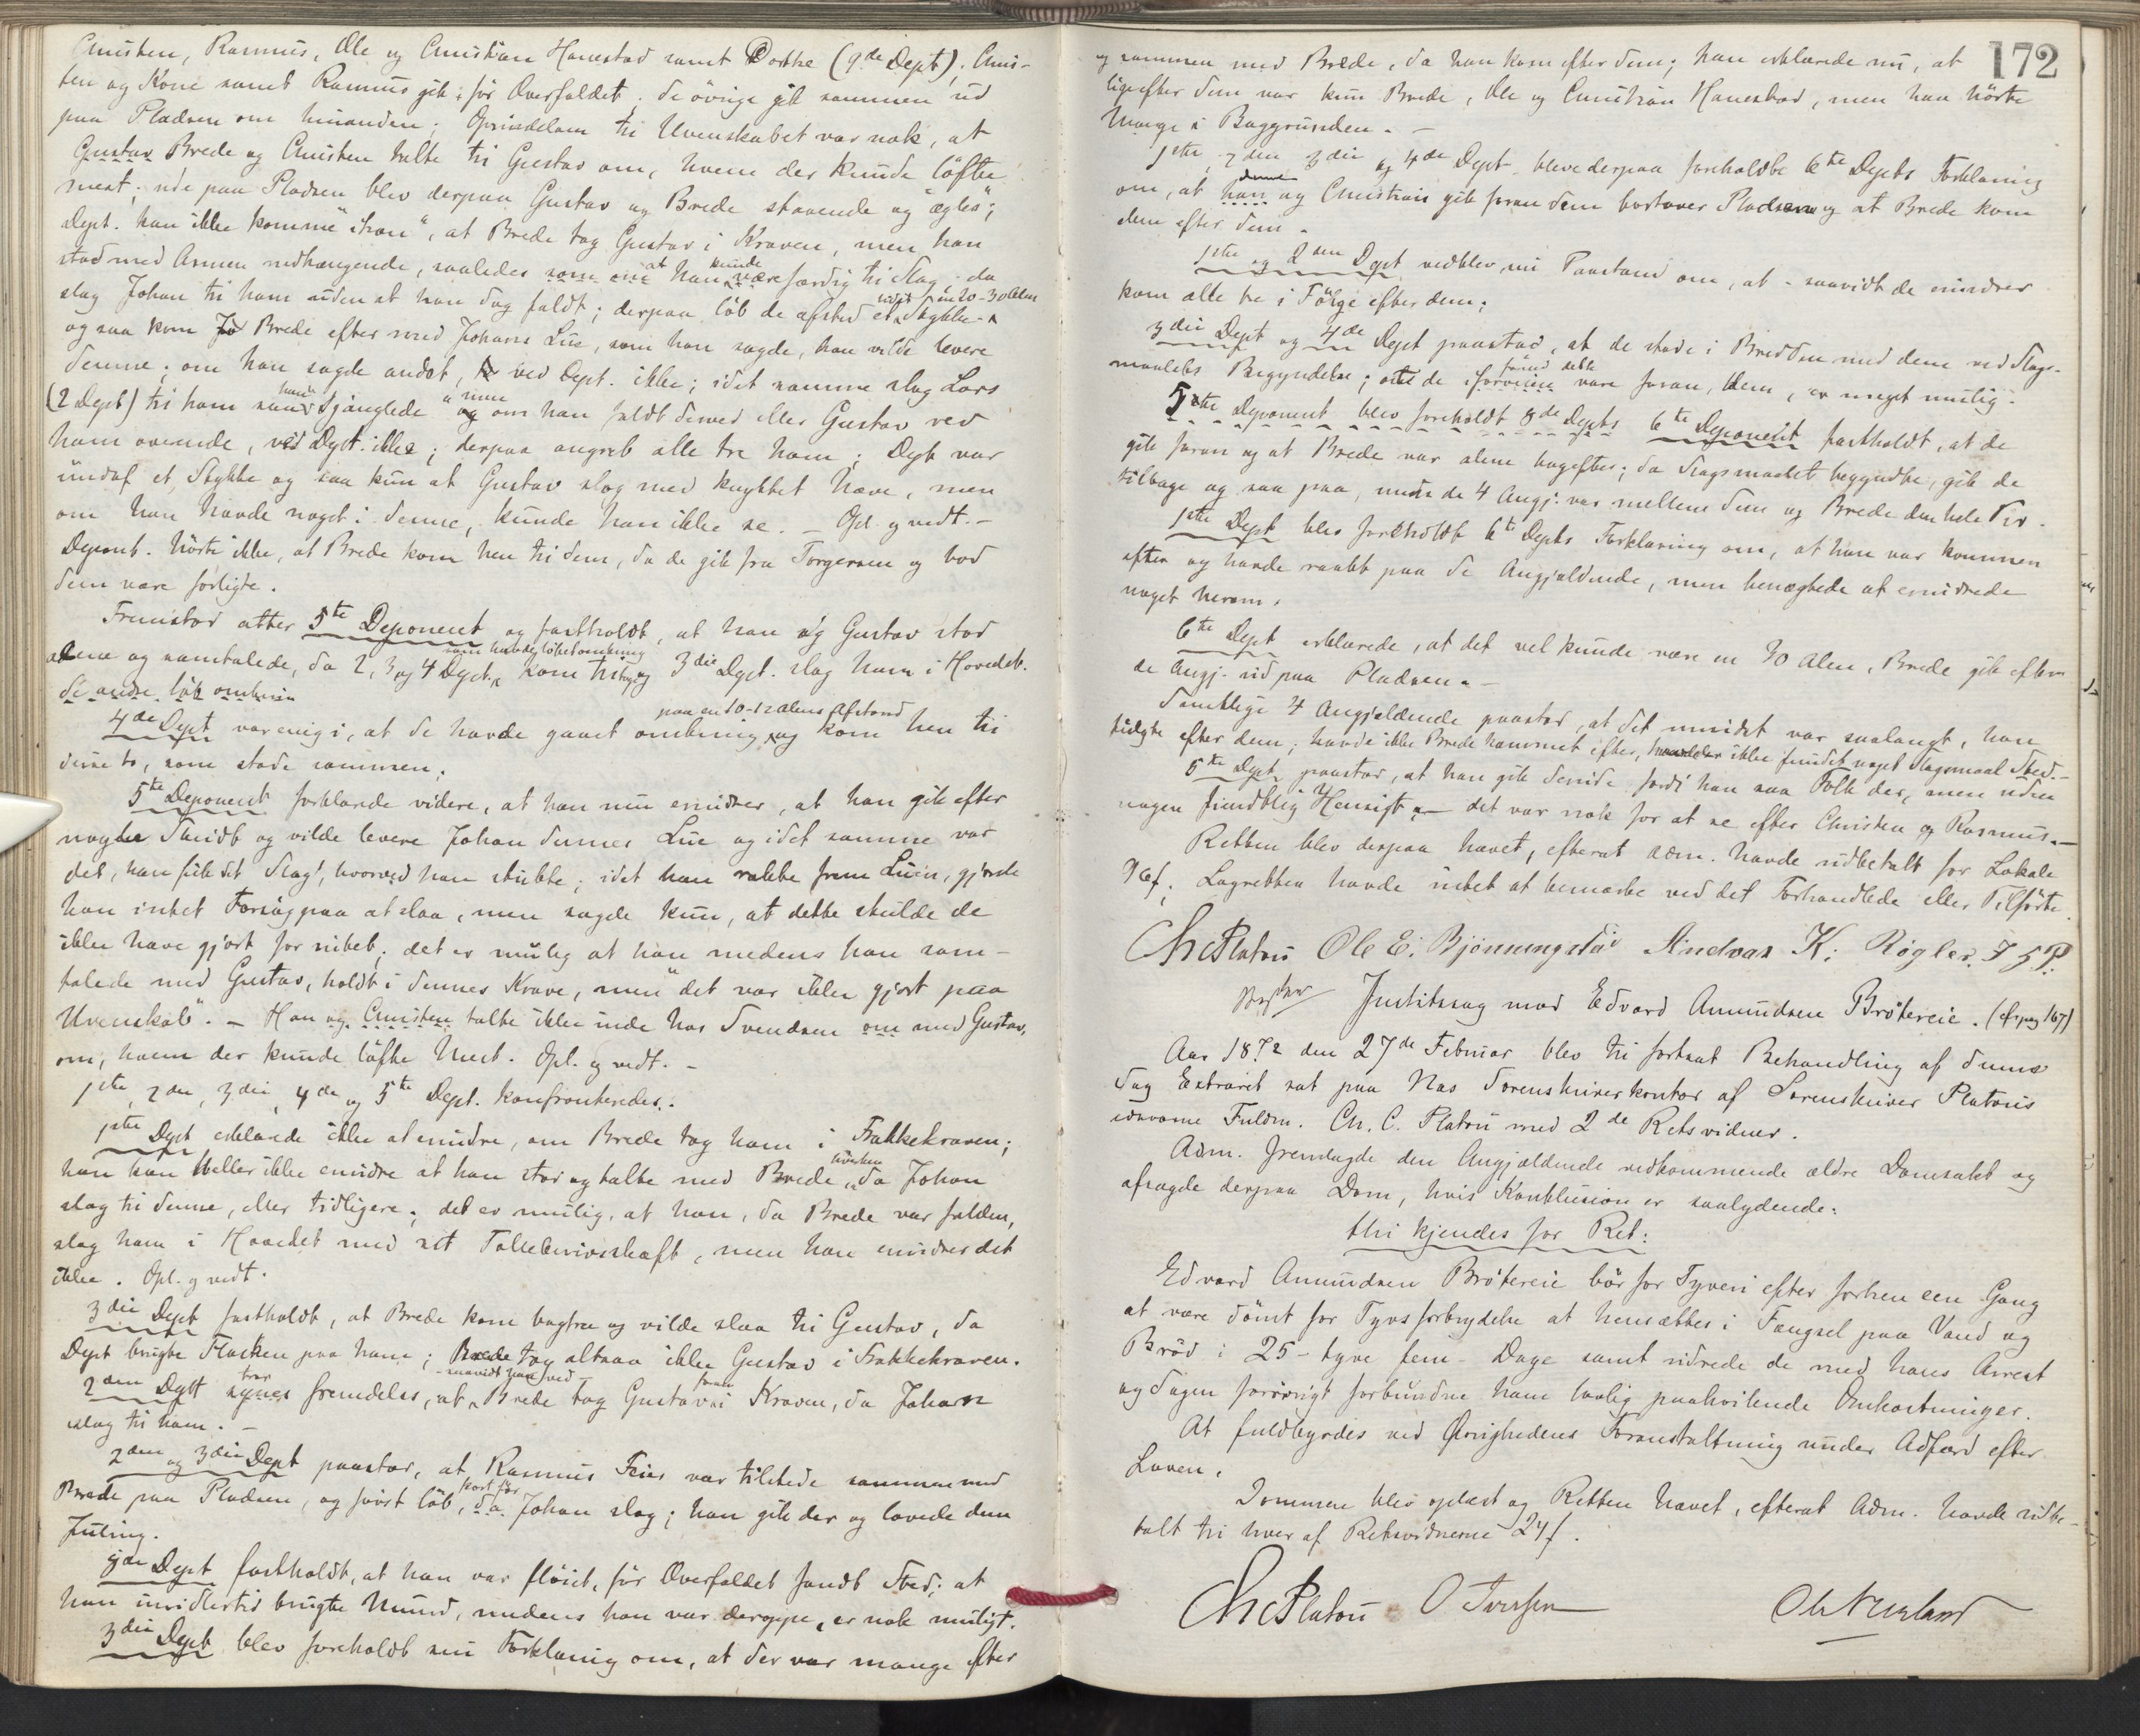 Christen, Rasmus, Ole og Christian Hanestad samt Dorthe (9de Dept); Chris-
ten og Kone samt Rasmus gik før Overfaldet. de øvrige gik sammen ud
paa Pladsen om hinanden; Oprindelsen til Uvenskabet var nok, at
Gustav Brede og Christen talte til Gustav om, hvem der kunde løfte
mest; ude paa Pladsen blev derpaa Gustav og Brede staaende og "ægles";
Dept. kan ikke komme "ihau", at Brede tog Gustav i Kraven, men han
stod med Armen nedhængende, saaledes som om at han kunde være færdig til Slag - da
slog Johan til ham uden at han dog faldt; derpaa løb de afsted et lidet Stykke - en 20-30 Alen
og saa kom Jo Brede efter med Johans Lue, som han sagde, han vilde levere
denne; om han sagde andet, ved Dept. ikke; idet samme slog Lars
(2 Dept) til ham saa han "sjanglede" men og om han faldt derved eller Gustav rev
ham overende, ved Dept. ikke; derpaa angreb alle tre ham; Dept var
undaf et Stykke og saa kun at Gustav slog med knyttet Næve, men
om han havde noget i denne, kunde han ikke se. - Opl. og vedt. -
Depont. hørte ikke, at Brede kom hen til dem, da de gik fra Torgersen og bad
dem være forligte.
Fremstod atter 5te Deponent og fastholdt, at han og Gustav stod
alene og samtalede, da 2, 3 og 4 Dept., som havde løbet omkring kom til og 3die Dept. slog ham i Hovedet.
de andre løb omkring
4de Dept var enig i, at de havde gaaet omkring paa en 10-12 Alens Afstand og kom hen til
disse to, som stode sammen.
5te Deponent forklarede videre, at han nu erindrer, at han gik efter
nogle Skridt og vilde levere Johan dennes Lue og idet samme var
det, han fik det Slag, hvorved han stupte; idet han rakte frem Luen, gjorde
han intet Forsøg paa at slaa, men sagde kun, at dette skulde de
ikke have gjort for intet; det er mulig at han medens han sam-
talede med Gustav, holdt i dennes Krave, men "det var ikke gjort paa
Uvenskab". - Han og Christen talte ikke inde hos Svendsen om med Gustav,
om, hvem der kunde løfte Mest. Opl. og vedt. -
1ste, 2den, 3die, 4de og 5te Dept. konfronteredes:
1ste Dept erklærede ikke at erindre, om Brede tog ham i Frakkekraven;
han kan heller ikke erindre at han stod og talte med Brede, hverken da Johan
slog til denne, eller tidligere; det er mulig, at han, da Brede var falden,
slog ham i Hovedet med sit Tolleknivsskaft, men han erindrer det
ikke. Opl. og vedt.
3die Dept fastholdt, at Brede kom bagfra og vilde slaa til Gustav, da
Dept brugte Flasken paa ham; Brede tog altsaa ikke Gustav i Frakkekraven.
2den Dept synes tror fremdeles, at - saavidt han ved - Brede tog Gustav foran i Kraven, da Johan
slog til ham. -
2den og 3die Dept paastod, at Rasmus Feier var tilstede sammen med
Brede paa Pladsen, og først løb, kort før da Johan slog; han gik der og lovede dem
Juling.
9de Dept fastholdt, at han var fløiet, før Overfaldet fandt Sted; at
han imidlertid brugte Mund, medens han var deroppe, er nok muligt.
3die Dept blev foreholdt sin Forklaring om, at der var mange efter
172
og sammen med Brede, da han kom efter dem; han erklærede nu, at
ligeefter dem var kun Brede, Ole og Christian Hanestad, men han hørte
Mange i Baggrunden. -
1ste, 2den 3die og 4de Dept. bleve derpaa foreholdte 6te Depts Forklaring
om, at han denne og Christian gik foran dem bortover Pladsen og at Brede kom
dem efter dem.
1ste og 2den Dept vedblev sin Paastand om, at - saavidt de erindrer
kom alle tre i Følge efter dem;
3die Dept og 4de Dept paastod, at de stode i Bredden med dem ved Slags-
maalets Begyndelse; at de iforveien forud dette vare foran dem, er meget mulig.
5te Deponent blev foreholdt 8de Depts 6te Deponent fastholdt, at de
gik foran og at Brede var alene bagefter; da Slagsmaalet begyndte, gik de
tilbage og saa paa, men de 4 Angj. var mellem dem og Brede den hele Tid.
1ste Dept blev foreholdt 6te Depts Forklaring om, at han var kommen
efter og havde raabt paa de Angjældende, men benægtede at erindrede
noget herom.
6te Dept erklærede, at det vel kunde være en 30 Alen, Brede gik efter
de Angj. ud paa Pladsen. -
Samtlige 4 Angjældende paastod, at det mindst var saalangt, han
fulgte efter dem; havde ikke Brede kommet efter, havde der ikke fundet noget Slagsmaal Sted. -
5te Dept paastod, at han gik derude fordi han saa Folk der, men uden
nogen fiendtlig Hensigt - det var nok for at se efter Christen og Rasmus. -
Retten blev derpaa hævet, efterat Adm. havde udbetalt for Lokale
96 s; Lagretten havde intet at bemærke ved det Forhandlede eller Tilførte.
Ch C Platou Ole E. Bjønnungstad Andreas K. Røgler. J. S. P.
Justitssag mod Edvard Amundsen Brøtereie. (cfr. pag 167)
Aar 1872 den 27de Februar blev til fortsat Behandling af denne
Sag Extraret sat paa Næs Sorenskriverkontor af Sorenskriver Platous
edsvorne Fuldm. Ch. C. Platou med 2de Retsvidner.
Adm. fremlagde den Angjældende vedkommende ældre Domsakt og
afsagde derpaa Dom, hvis Konklusion er saalydende:
thi kjendes for Ret:
Edvard Amundsen Brøtereie bør for Tyveri efter forhen een Gang
at være dømt for Tyvsforbrydelse at hensættes i Fængsel paa Vand og
Brød i 25 - tyve fem - Dage samt udrede de med hans Arrest
og Sagen forøvrigt forbundne ham lovlig paahvilende Omkostninger.
At fuldbyrdes ved Øvrighedens Foranstaltning under Adfærd efter
Loven.
Dommen blev oplæst og Retten hævet, efterat Adm. havde udbe-
talt til hver af Retsvidnerne 24 s.
Ch C Platou O Iversen